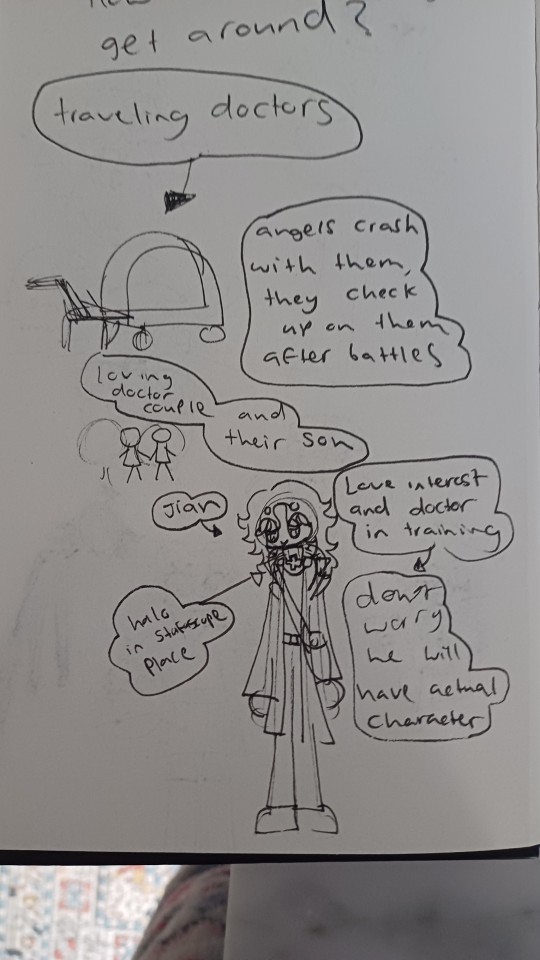 get around?
traveling doctors
angels crash
with them,
they check
up on them
after battles
loving
doctor
couple
and
their son
Jian
Love interest
and doctor
in training
halo
in
place
dont
worry
he will
have actual
character